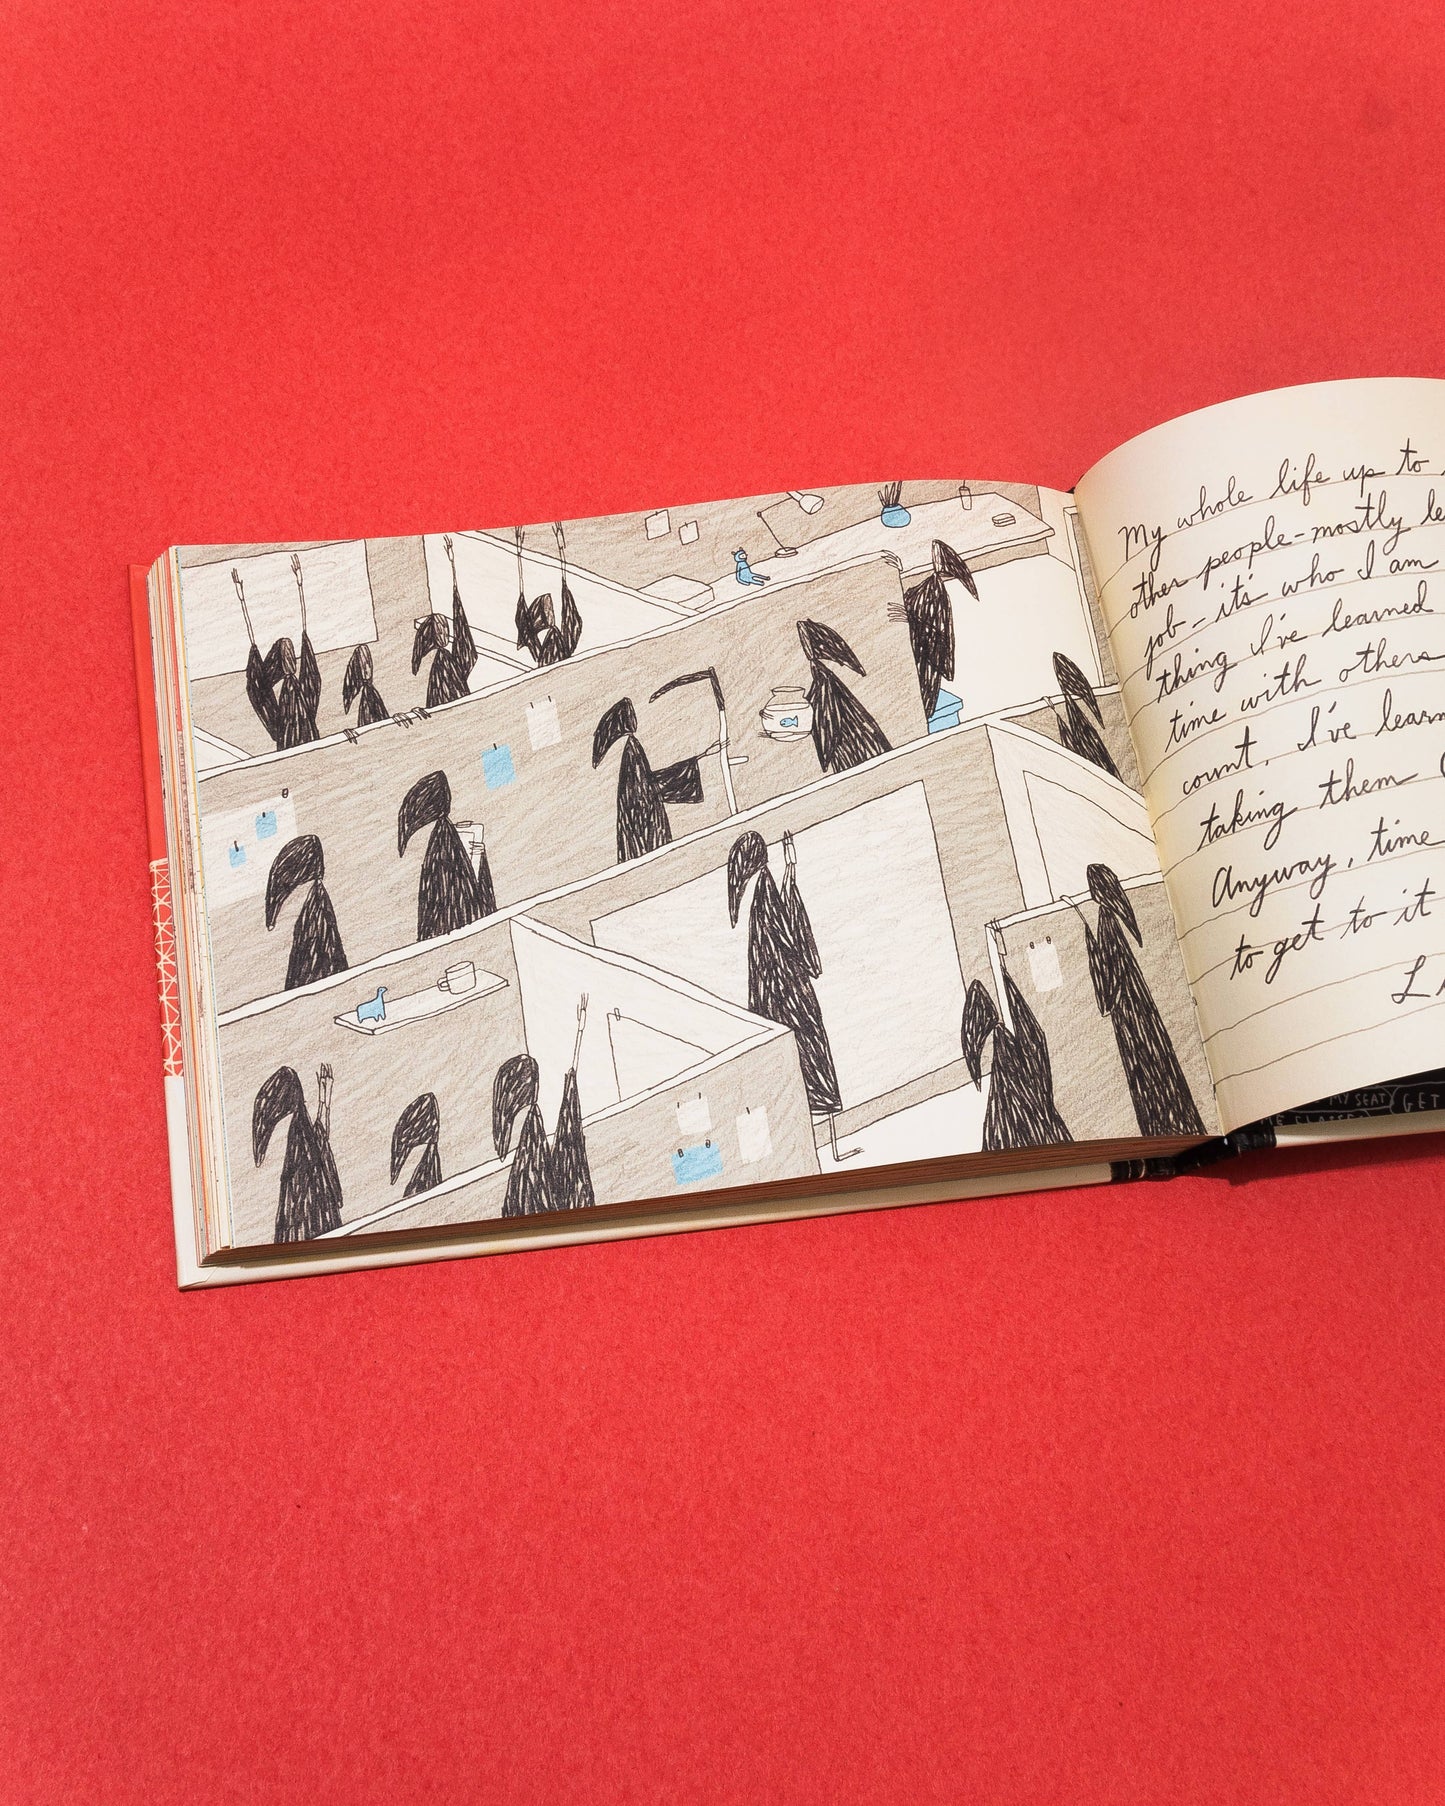 My whole life up to
other people-mostly
job - it's who I am
thing I've learned
time with others
count, I've
taking them
Anyway, time
to get to it
MY SEAT GET